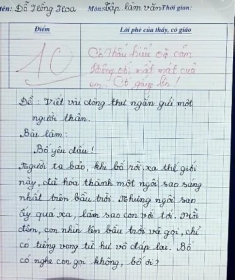 tên: Đỗ Hồng Hoa Môn: Tập làm văn Thời gian:
Điểm Lời phê của thầy, cô giáo
10 Cô thấu hiểu cảm
mất mát của
Cố gắng lên!
Đề: Viết vài dòng thư ngắn gửi một
người thân.
Bài làm:
Bố yêu dấu!
Người ta bảo, khi bố rời xa thế giới
này, đã hóa thành một ngôi sao sáng
nhất trên bầu trời. Nhưng ngôi sao
ấy quá xa, làm sao con với tới. Mỗi
đêm, con nhìn lên bầu trời và gọi, chỉ
có tiếng vọng từ hư vô đáp lại. Bố
có nghe con gọi không, bố ơi?